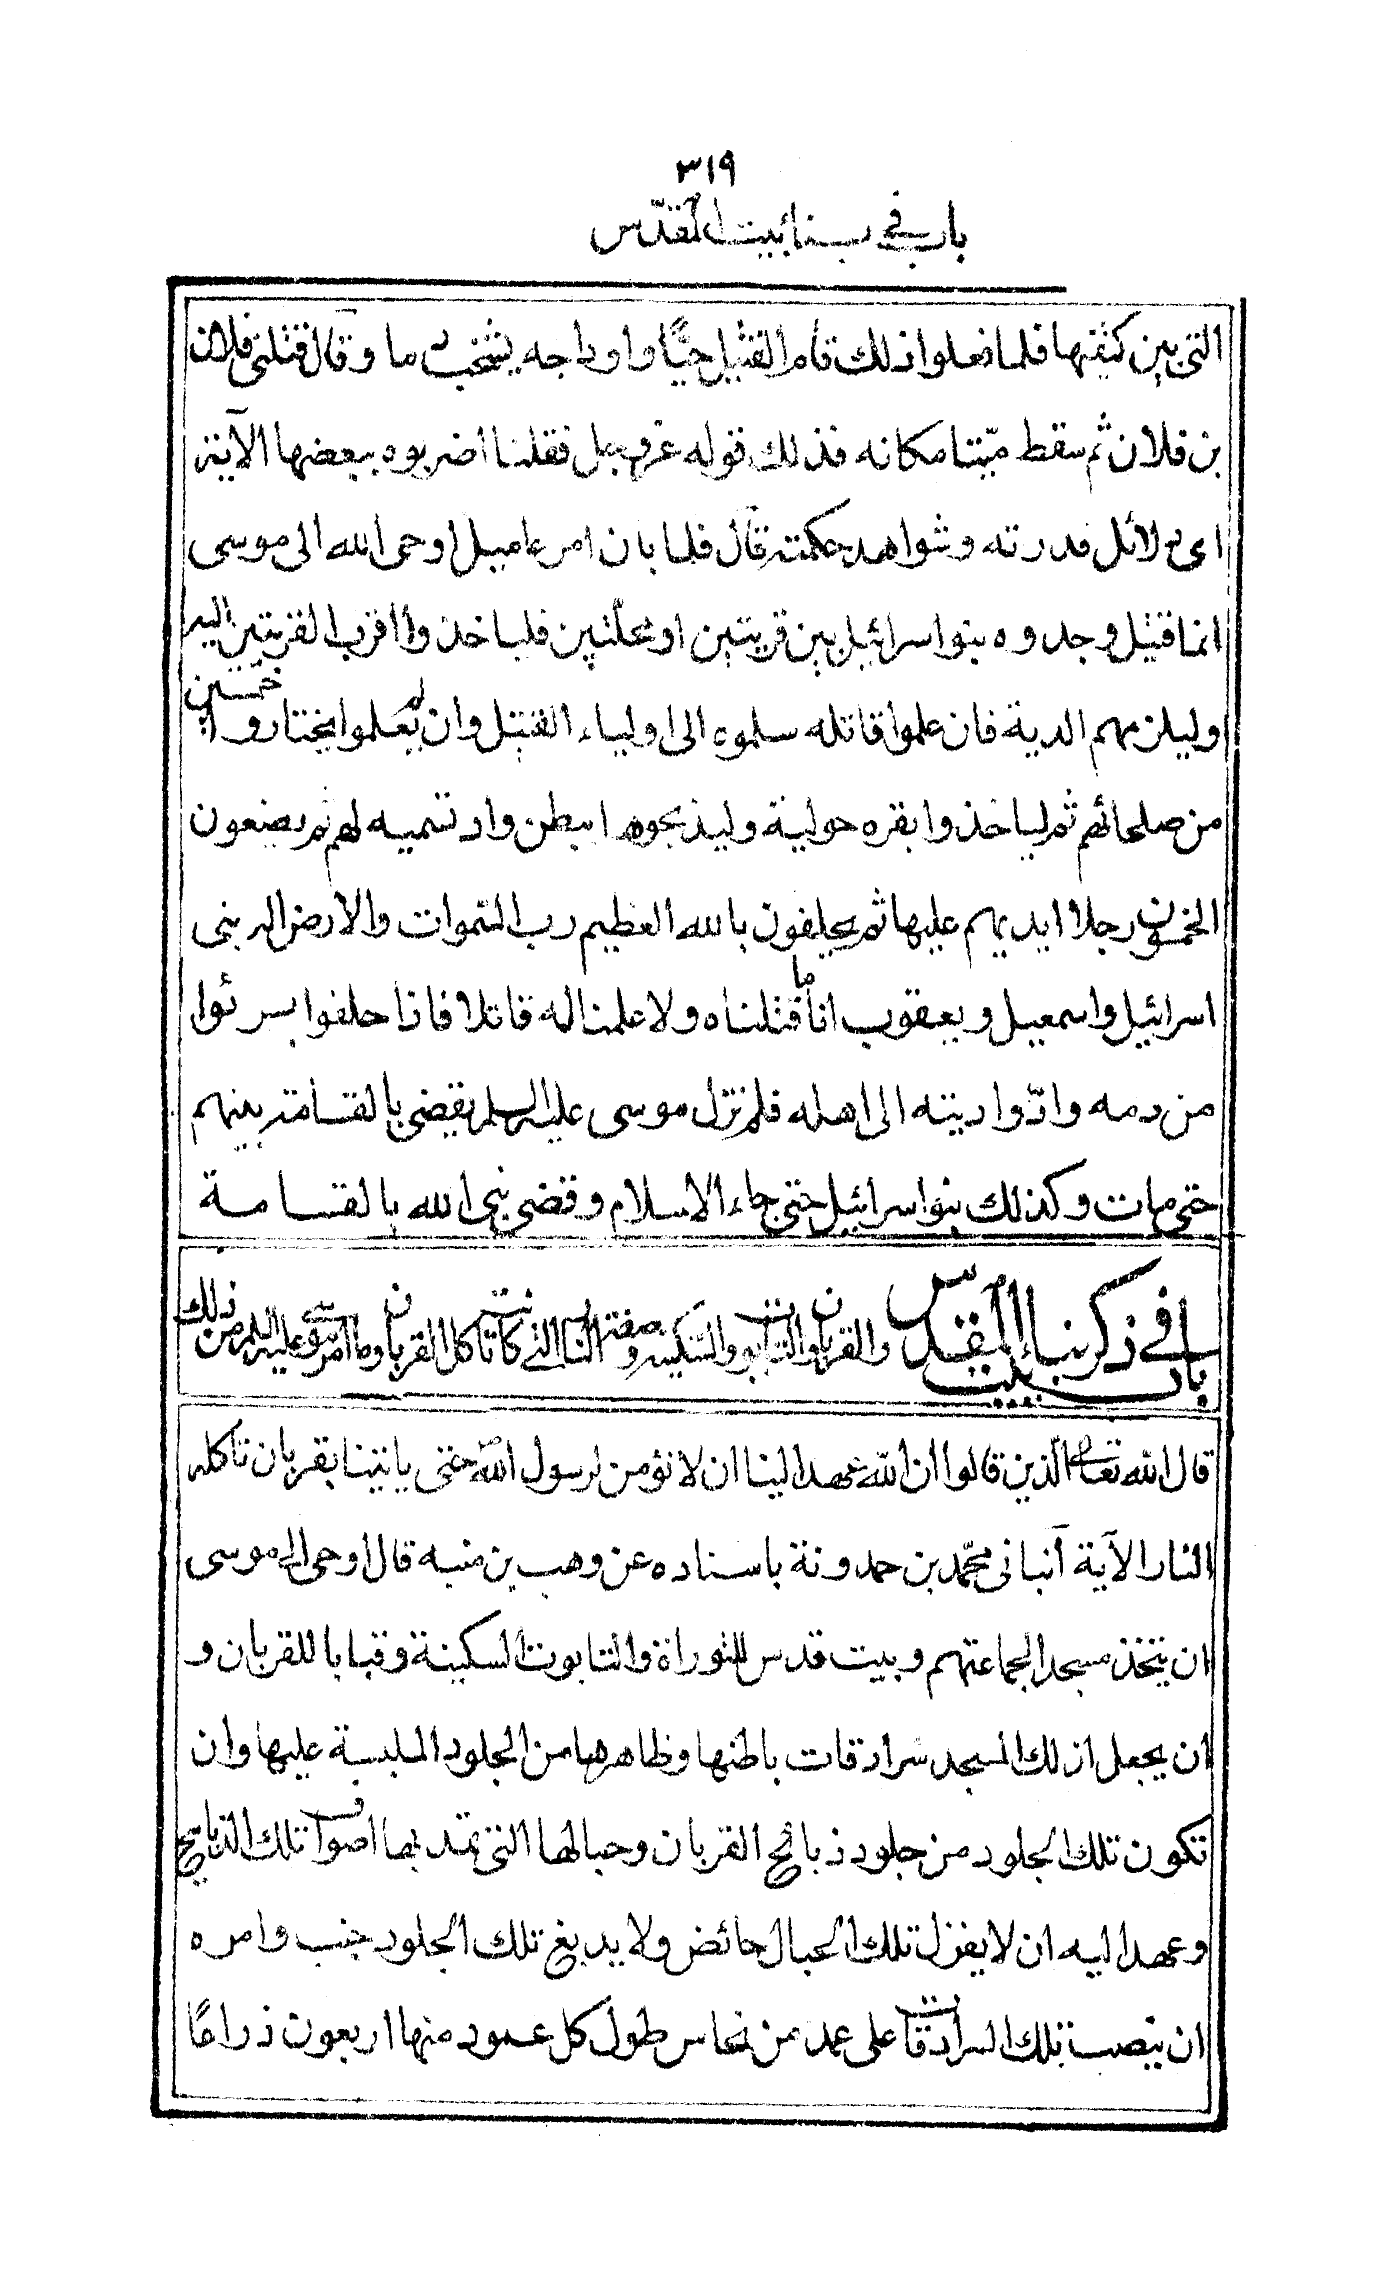 ٣١٩
باب في بناء بيت المقدس
التى بين كتفيها فلما فعلوا ذلك قام القتيل حيًّا واوداجه يشخب دما وقال قتلنى فلان
بن فلان ثم سقط ميّتا مكانه فذلك قوله عز وجل فقلنا اضربوه ببعضها الآية
اى دلائل قدرته وشواهد حكمته قال فلما بان امر عاميل اوحى الله الى موسى
انما قتيل وجدوه بنوا سرائيل بين قريتين او محلّتين فليا خذوا اقرب القريتين اليه
وليلزمهم الدية فان علموا قاتله سلموه الى اولياء القتيل وان لم يعلموا يختاروا خمسين
من صلحائهم ثم ليا خذوا بقره حولية وليذبحوها ببطن واد تسميه لهم ثم يضعون
الخمسون رجلا ايديهم عليها ثم يحلفون بالله العظيم رب السّموات والارض اله بنى
اسرائيل واسمعيل ويعقوب انا ما قتلناه ولا علمنا له قاتلا فاذا حلفوا برئوا
من دمه وادّوا ديته الى اهله فلم نزل موسى عليه السلم يقضى بالقسامة بينهم
حتى مات وكذلك بنوا سرائيل حتى جاء الاسلام وقضى نبى الله بالقسامة
باب في ذكر بناء بيت المقدس والقربان والتابوت والسّكينه وصفة النار التى كانت تاكل القربان وما امر موسى عليه السلم من ذلك
قال الله تعالى الّذين قالوا ان الله عهد الينا ان لا نؤمن لرسول الله حتى ياتينا بقربان تاكله
النار الآية أنبانى محمّد بن حمدونة باسناده عن وهب بن منبه قال اوحى الى موسى
ان يتخذ مسجدا لجماعتهم وبيت قدس للتوراة والتابوت السكينة وقبابا للقربان و
ان يجعل لذلك المسجد سرادقات باطنها وظاهرها من الجلود الملبسة عليها وان
تكون تلك الجلود من جلود ذبائح القربان وحبالها التى تمد بها اصواف تلك الذبائح
وعهد اليه ان لا يغزل تلك الحبال حائض ولا يدبغ تلك الجلود جنب وامره
ان ينصب تلك السرادقات على عمد من نحاس طول كل عمود منها اربعون ذراعًا